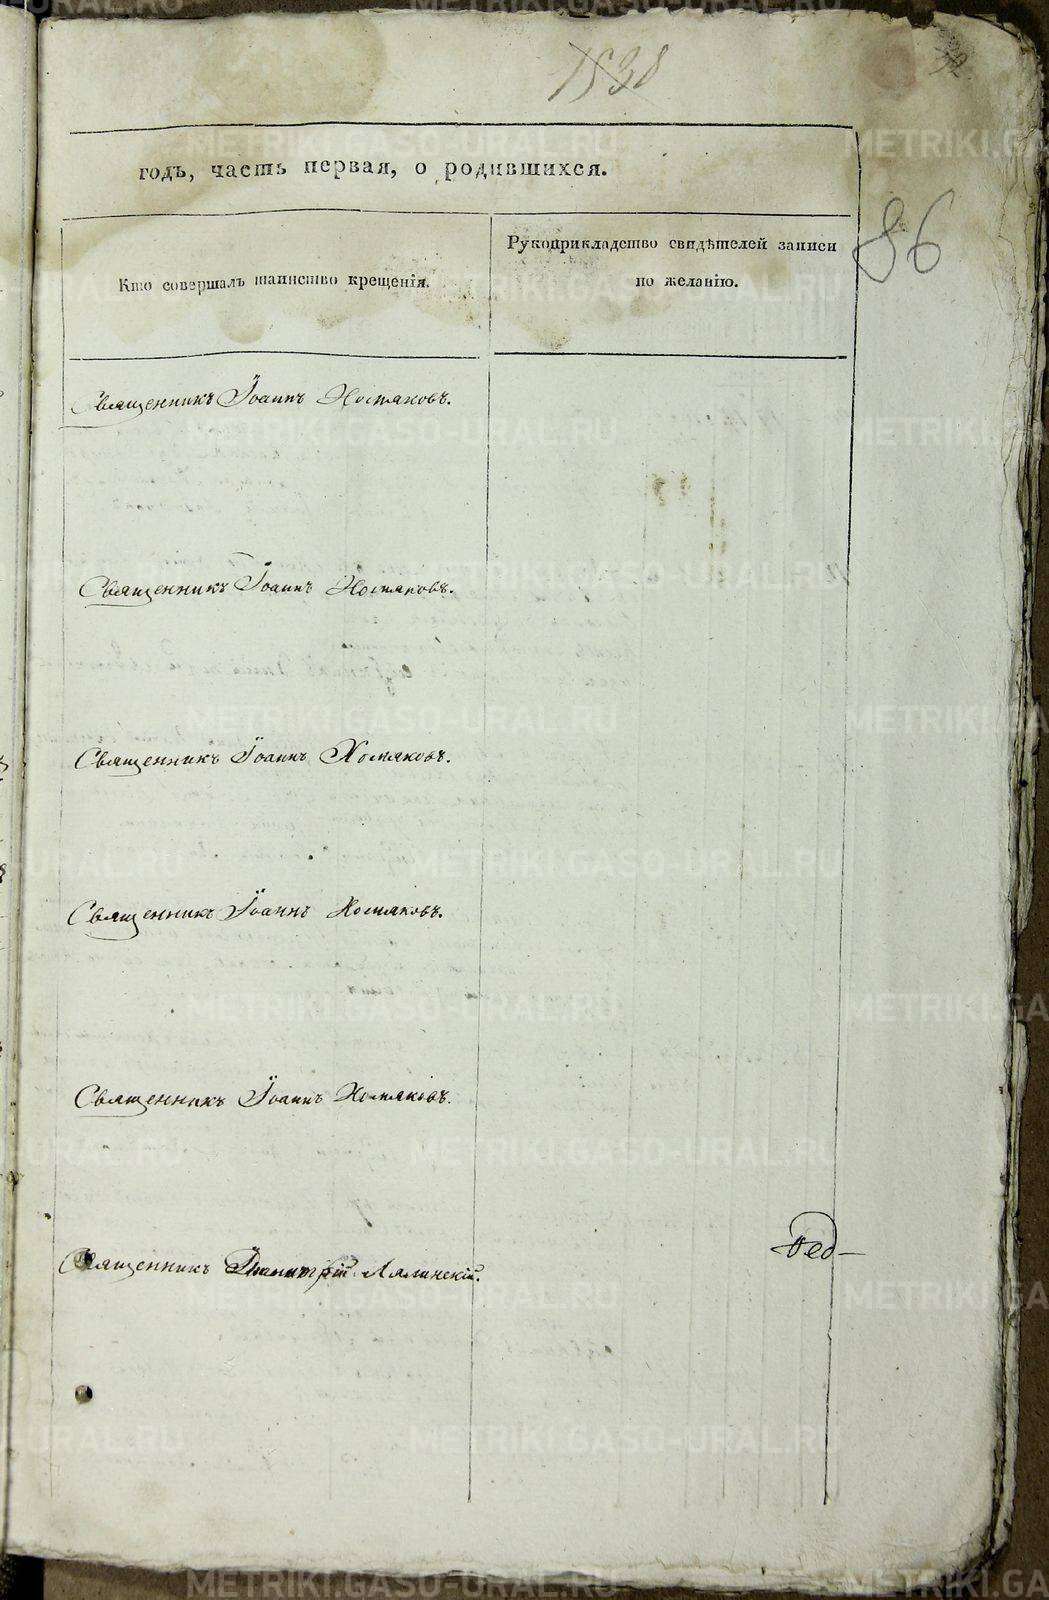 1838
годъ, часть первая, о родившихся.
86
Кто совершалъ таинство крещенія.
Рукоприкладство свидѣтелей записи
по желанію.
Священникъ Іоаннъ Хомяковъ.
Священникъ Іоаннъ Хомяковъ.
Священникъ Іоаннъ Хомяковъ.
Священникъ Іоаннъ Хомяковъ.
Священникъ Іоаннъ Хомяковъ.
Священникъ Димитрій Лялинскій.
METRIKI.GASO-URAL.RU